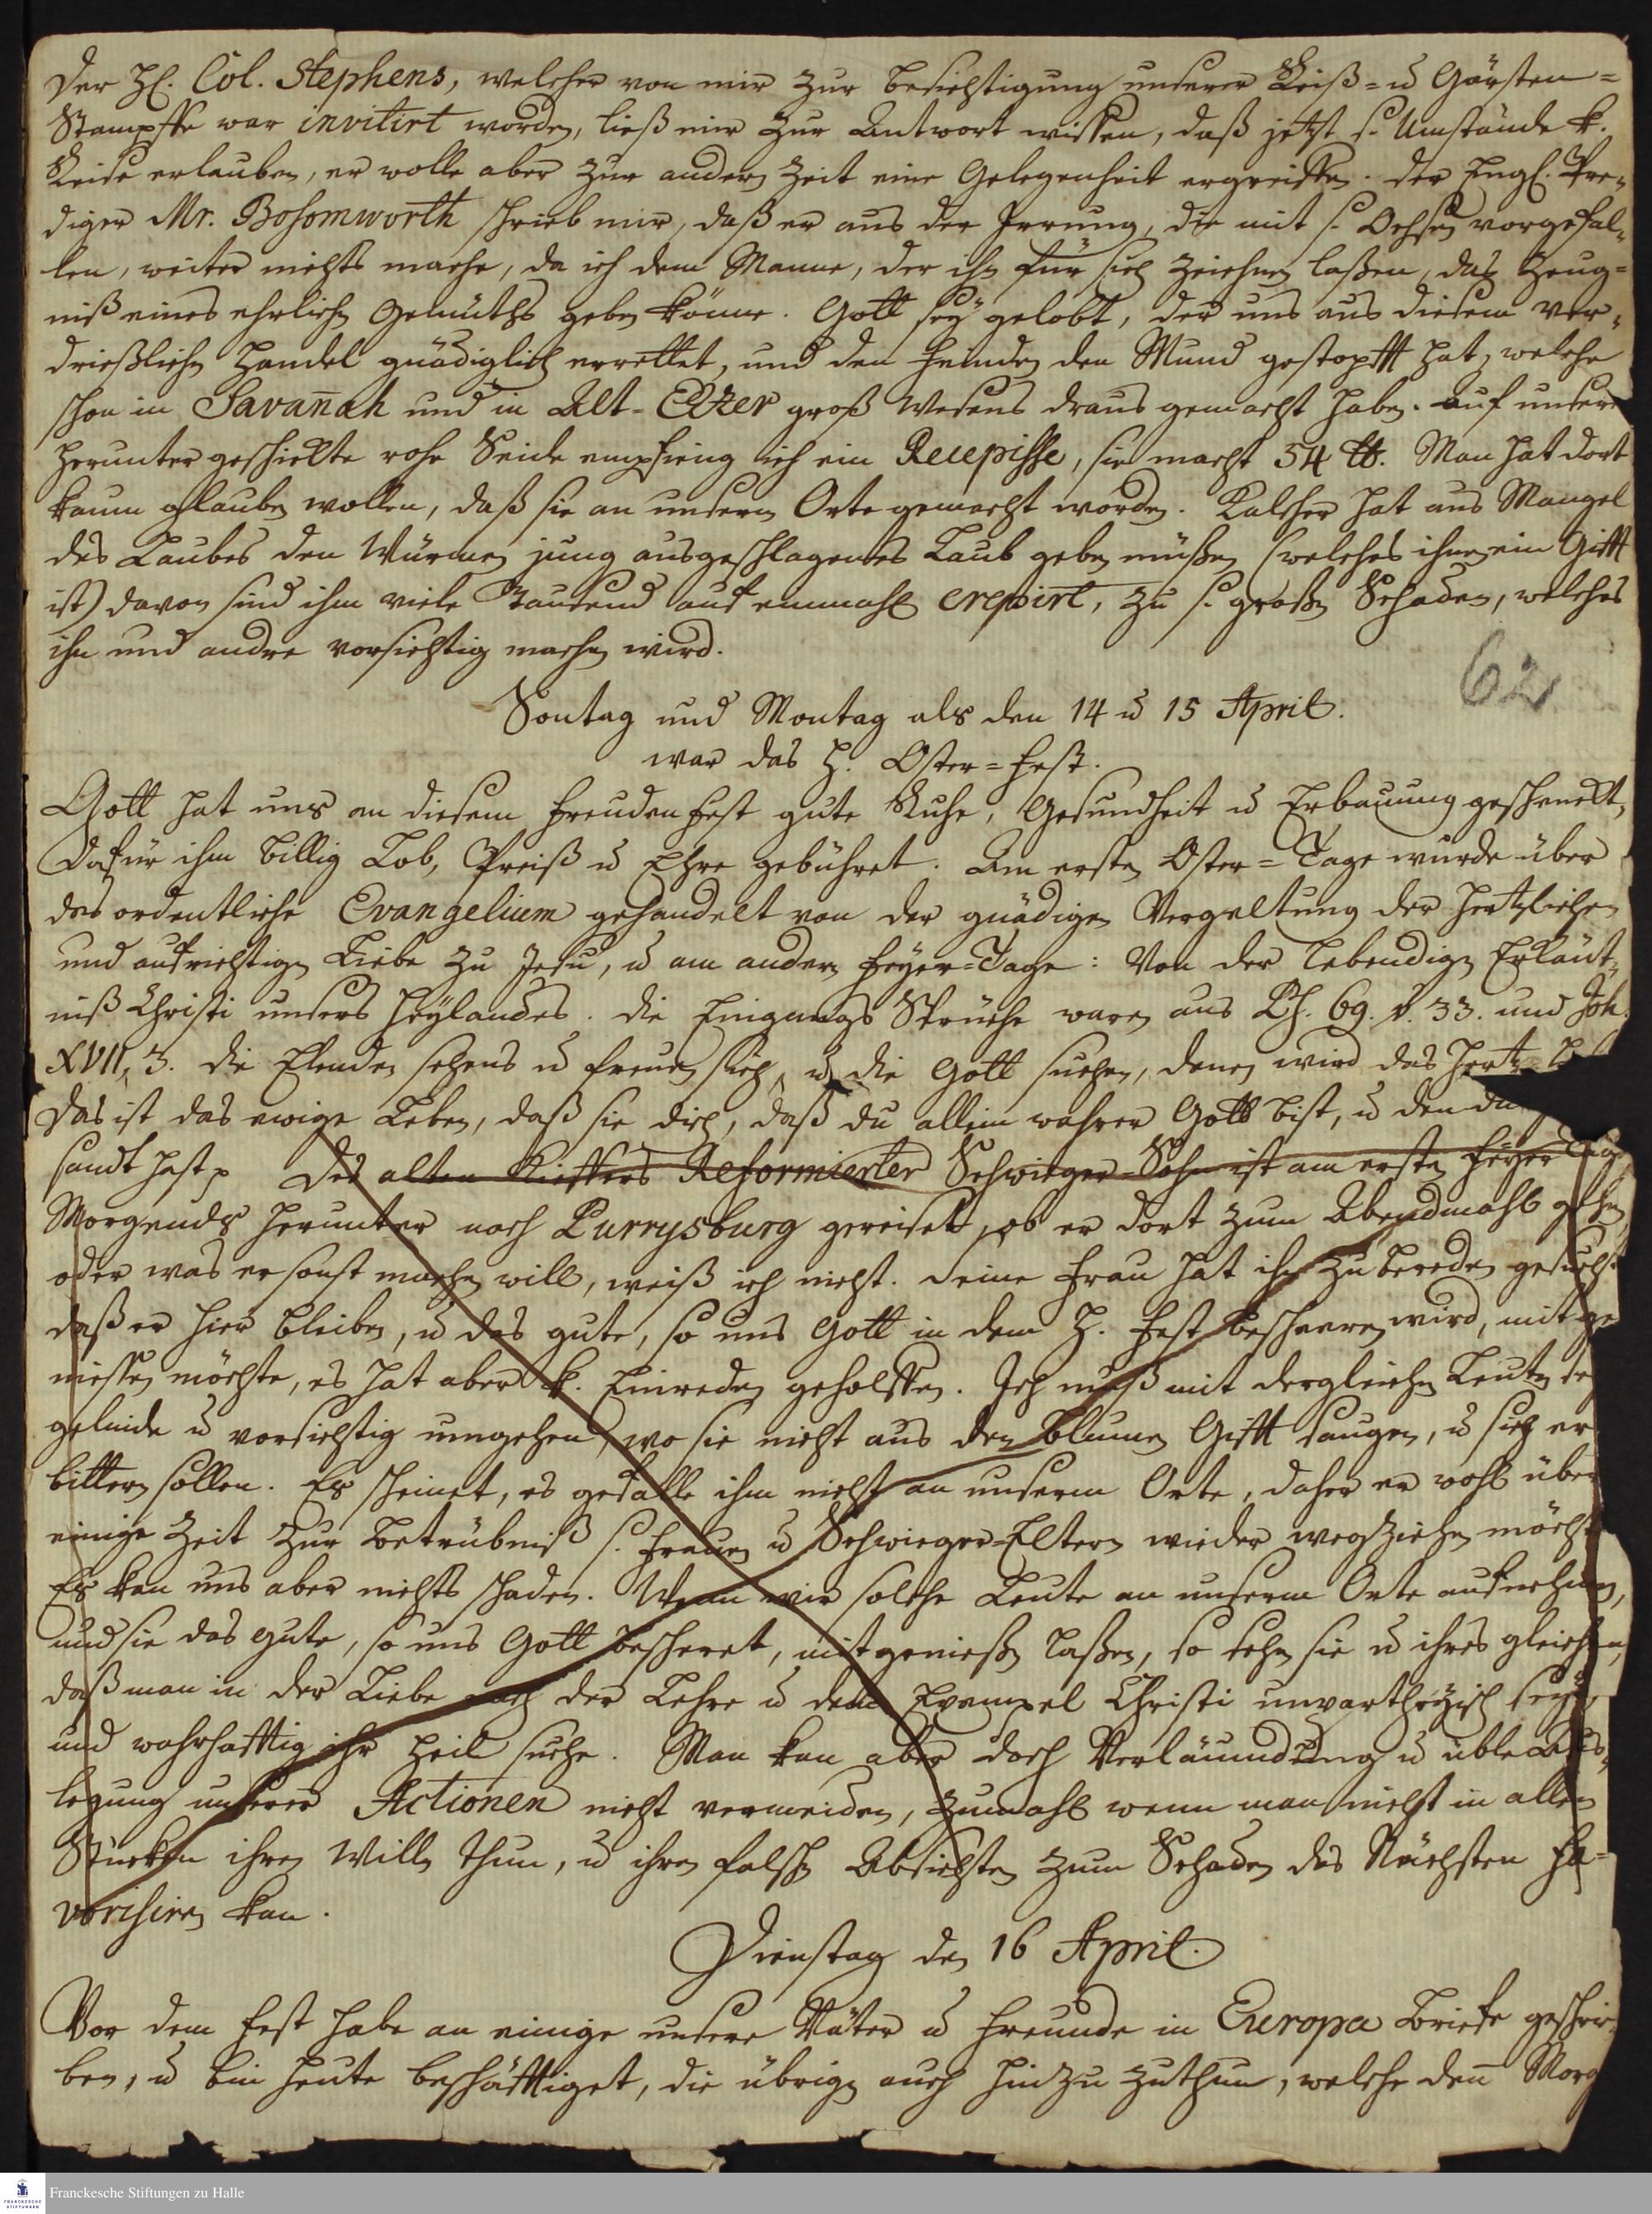 Der H. Col. Stephens, welcher von mir zur Besichtigung unserer Reiß- u Gärsten-
Stampffe war invitirt worden, ließ mir zur Antwort wissen, daß jetzt s. Umstände k.
Reise erlauben, er wolle aber zur andern Zeit eine Gelegenheit ergreiffen. Der Engl. Pre-
diger Mr. Bosomworth schrieb mir, daß er aus der Irrung, die mit s. Ochsen vorgefal-
len, weiter nichts mache, da ich dem Manne, der ihn für sich zeichnen laßen, das Zeug-
niß eines ehrlichen Gemüths geben könne. Gott sey gelobt, der uns aus diesem ver-
drießlichen Handel gnädiglich errettet, und den Feinden den Mund gestopfft hat, welche
schon in Savan̄ah und in Alt-Ebzer groß Wesens draus gemacht haben. Auf unsere
herunter geschickte rohe Seide empfieng ich ein Recepisse, sie macht 54 ℔. Man hat dort
kaum glauben wollen, daß sie an unserm Orte gemacht worden. Kalcher hat aus Mangel
des Laubes den Würmen jung ausgeschlagenes Laub geben müßen (welches ihnen ein Gifft
ist) davon sind ihm viele Tausend auf einmahl crepirt, zu s. großen Schaden, welches
ihn und andre vorsichtig machen wird.
62
Sontag und Montag als den 14 u 15 April.
war das H. Oster-Fest.
Gott hat uns an diesem Freudenfest gute Ruhe, Gesundheit u Erbauung geschenckt,
dafür ihm billig Lob, Preiß u Ehre gebühret. Am ersten Oster-Tage wurde über
das ordentliche Evangelium gehandelt von der gnädigen Vergeltung der hertzlichen
und aufrichtigen Liebe zu Jesu, u am andern Feyer-Tage: Von der lebendigen Erkänt-
niß Christi unsers Heylandes. Die Eingangs Sprüche waren aus Ps. 69. v. 33. und Joh.
XVII, 3. Die Elenden sehens u freuen sich, u die Gott suchen, denen wird das Hertz
Das ist das ewige Leben, daß sie dich, daß du allein wahrer Gott bist, u den du
sandt hast p Des alten Kieffers Reformierter Schwieger-Sohn ist am ersten Feyer Tage
Morgends herunter nach Purrysburg gereiset, ob er dort zum Abendmahl gehen,
oder was er sonst machen will, weiß ich nicht. Seine Frau hat ihn zu bereden gesucht
daß er hier bleiben, u das gute, so uns Gott in dem H. Fest bescheeren wird, mit ge
niessen möchte, es hat aber k. Einreden geholffen. Ich muß mit dergleichen Leuten
gelinde u vorsichtig umgehen, wo sie nicht aus den Blumen Gifft saugen, u sich er
bittern sollen. Es scheinet, es gefalle ihm nicht an unserm Orte, daher er wohl über
einige Zeit zur Betrübniß s. Frauen u Schwieger-Eltern wieder wegziehen möchte
Es kan uns aber nichts schaden. Wenn wir solche Leute an unserm Orte aufnehmen,
und sie das gute, so uns Gott bescheret, mit genießen laßen, so sehen sie u ihres gleichen,
daß man in der Liebe nach der Lehre u dem Exempel Christi unpartheyisch sey,
und wahrhafftig ihr Heil suche. Man kan aber doch Verläumdung u üble Aus-
legung unserer Actionen nicht vermeiden, zumahl wenn man nicht in allen
Stücken ihren Willen thun, u ihren falschen Absichten zum Schaden des Nächsten fa-
vorisiren kan.
Dienstag den 16 April.
Vor dem Fest habe an einige unsere Väter u Freunde in Europa Briefe geschrie-
ben, u bin heute beschäfftiget, die übrigen auch hinzu zuthun, welche den̄ Morg
Franckesche Stiftungen zu Halle